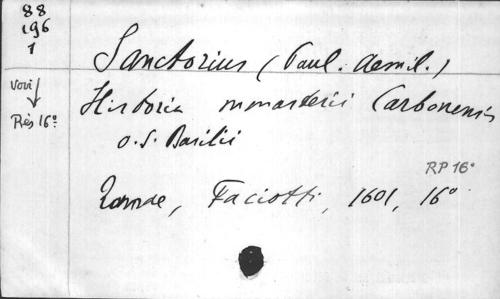 88
196
1
Sanctorius (Paul. Aemil.)
voir
Historia monasterii Carbonensis
Rés 16°
o.S. Basilii
RP 16°
Romae, Faciotti, 1601, 16°